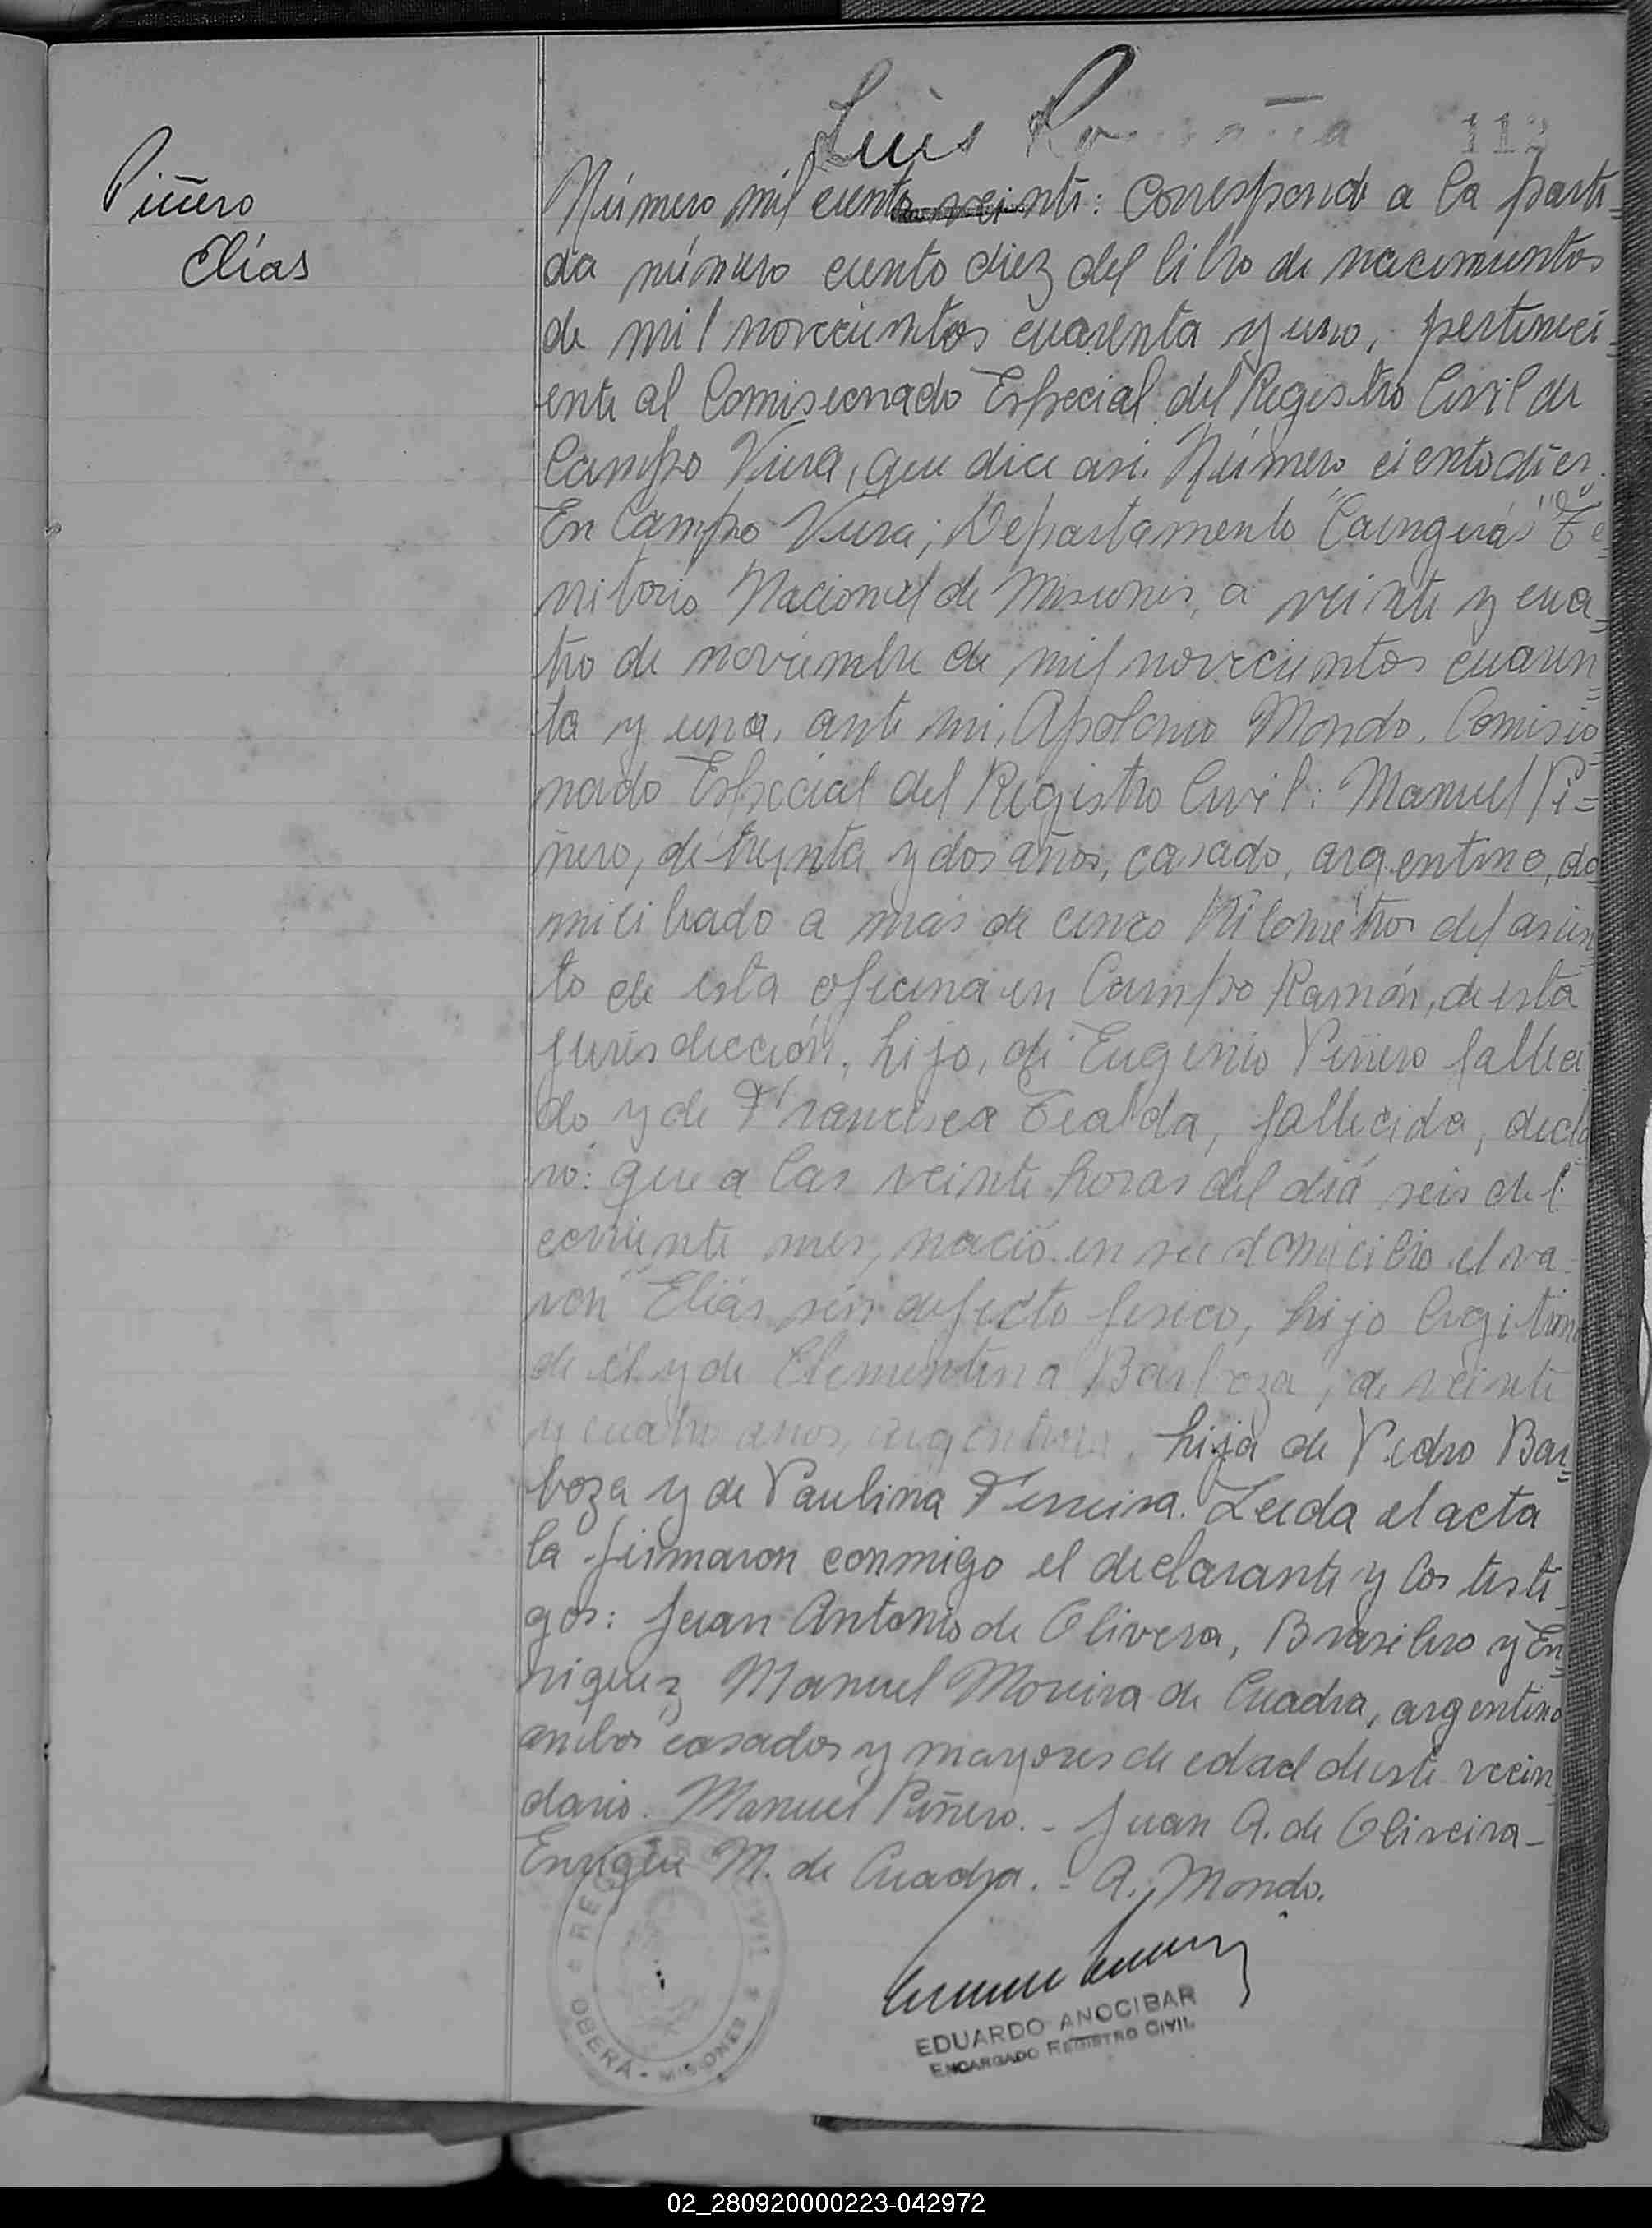 Luis
112
Piñero
Elías
Número mil ciento veinte: Corresponde a la parti=
da número ciento diez del libro de nacimientos
de mil novecientos cuarenta y uno, perteneci=
ente al Comisionado Especial del Registro Civil de
Campo Viera, que dice asi. Número ciento diez.
En Campo Viera; Departamento "Cainguás" Te=
rritorio Nacional de Misiones, a veinte y cua=
tro de noviembre de mil novecientos cuaren=
ta y uno, ante mi, Apolonio Mondo, Comisio=
nado Especial del Registro Civil: Manuel Pi=
ñero, de treinta y dos años, casado, argentino, do
miciliado a mas de cinco Kilómetros del asien
to de esta oficina en Campo Ramón, de esta
jurisdicción, hijo, de Eugenio Piñero falleci
do y de Francisca, fallecida, decla
ró: que a las veinte horas del diá seis del
corriente mes, nació en su domicilio el va=
ron "Elias sin defecto fisico, hijo legitimo
de él y de Clementina Barboza, de veinte
y cuatro años, argentina, hija de Pedro Bar=
boza y de Paulina Ferreira. Leida el acta
la firmaron conmigo el declarante y los testi=
gos: Juan Antonio de Olivera, Brasilero y En=
riquez Manuel Moreira de Cuadra, argentino
ambos casados y mayores de edad de este vecin
dario. Manuel Piñero.- Juan A. de Oliveira-
Enrique M. de Cuadra.- A. Mondo.
REGISTRO CIVIL
OBERÁ - MISIONES
EDUARDO ANOCIBAR
ENCARGADO REGISTRO CIVIL
02_280920000223-042972